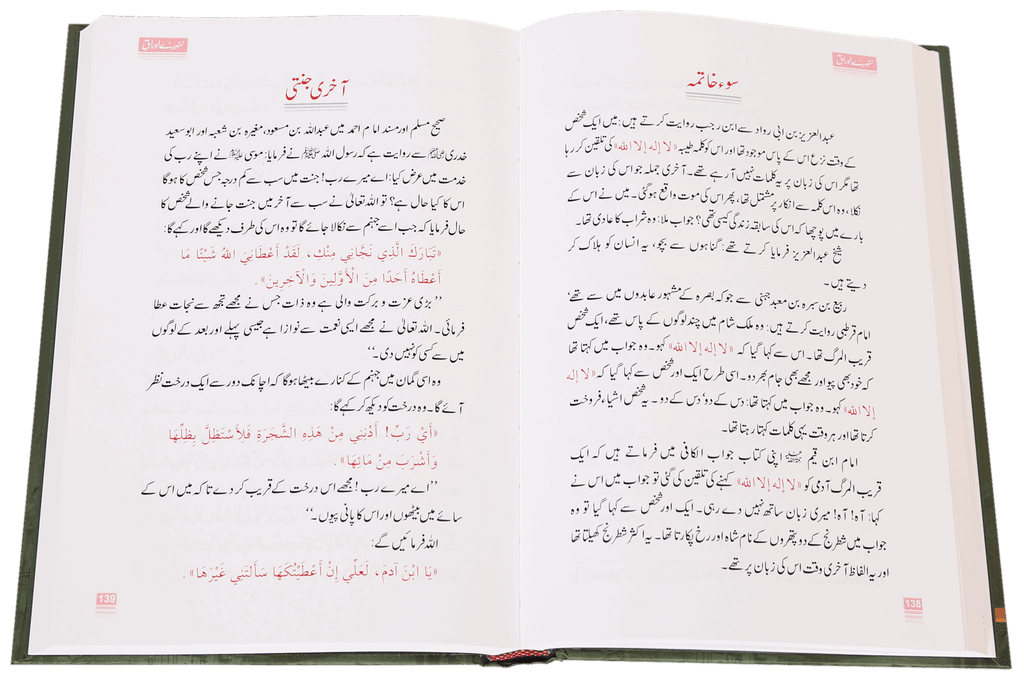 سنہرے اوراق
سوء خاتمہ
عبدالعزیز بن ابی رواد سے ابن رجب روایت کرتے ہیں: میں ایک شخص
کے وقت نزع اس کے پاس موجود تھا اور اس کو کلمہ طیبہ «لا إله إلا الله» کی تلقین کر رہا
تھا مگر اس کی زبان پر یہ کلمات نہیں آ رہے تھے۔ آخری جملہ جو اس کی زبان سے
نکلا، وہ اس کلمہ سے انکار پر مشتمل تھا، پھر اس کی موت واقع ہوگئی۔ میں نے اس کے
بارے میں پوچھا کہ اس کی سابقہ زندگی کیسی تھی؟ جواب ملا: وہ شراب کا عادی تھا۔
شیخ عبدالعزیز فرمایا کرتے تھے: گناہوں سے بچو، یہ انسان کو ہلاک کر
دیتے ہیں۔
ربیع بن سبرہ بن معبد جہنی سے جو کہ بصرہ کے مشہور عابدوں میں سے تھے،
امام قرطبی روایت کرتے ہیں: وہ ملک شام میں چند لوگوں کے پاس تھے، ایک شخص
قریب المرگ تھا۔ اس سے کہا گیا کہ «لا إله إلا الله» کہو۔ وہ جواب میں کہتا تھا
کہ خود بھی پیو اور مجھے بھی جام بھر دو۔ اسی طرح ایک اور شخص سے کہا گیا کہ «لا إله
إلا الله» کہو۔ وہ جواب میں کہتا تھا: دس کے دو، دس کے دو۔ یہ شخص اشیاء فروخت
کرتا تھا اور ہر وقت یہی کلمات کہتا رہتا تھا۔
امام ابن قیم رحمہ اللہ اپنی کتاب جواب الکافی میں فرماتے ہیں کہ ایک
قریب المرگ آدمی کو «لا إله إلا الله» کہنے کی تلقین کی گئی تو جواب میں اس نے
کہا: آہ! آہ! میری زبان ساتھ نہیں دے رہی۔ ایک اور شخص سے کہا گیا تو وہ
جواب میں شطرنج کے دو پتھروں کے نام شاہ اور رخ پکارتا تھا۔ یہ اکثر شطرنج کھیلتا تھا
اور یہ الفاظ آخری وقت اس کی زبان پر تھے۔
138
سنہرے اوراق
آخری جنتی
صحیح مسلم اور مسند امام احمد میں عبداللہ بن مسعود، مغیرہ بن شعبہ اور ابوسعید
خدری رضی اللہ عنہم سے روایت ہے کہ رسول اللہ ﷺ نے فرمایا: موسیٰ علیہ السلام نے اپنے رب کی
خدمت میں عرض کیا: اے میرے رب! جنت میں سب سے کم درجہ جس شخص کا ہوگا
اس کا کیا حال ہے؟ تو اللہ تعالیٰ نے سب سے آخر میں جنت جانے والے شخص کا
حال فرمایا کہ جب اسے جہنم سے نکالا جائے گا تو وہ اس کی طرف دیکھے گا اور کہے گا:
«تَبَارَكَ الَّذِي نَجَّانِي مِنْكِ، لَقَدْ أَعْطَانِيَ اللهُ شَيْئًا مَا
أَعْطَاهُ أَحَدًا مِنَ الْأَوَّلِينَ وَالْآخِرِينَ».
’’بڑی عزت و برکت والی ہے وہ ذات جس نے مجھے تجھ سے نجات عطا
فرمائی۔ اللہ تعالیٰ نے مجھے ایسی نعمت سے نوازا ہے جیسی پہلے اور بعد کے لوگوں
میں سے کسی کو نہیں دی۔‘‘
وہ اسی گمان میں جہنم کے کنارے بیٹھا ہوگا کہ اچانک دور سے ایک درخت نظر
آئے گا۔ وہ درخت کو دیکھ کر کہے گا:
«أَيْ رَبِّ! أَدْنِنِي مِنْ هَذِهِ الشَّجَرَةِ فَلِأَسْتَظِلَّ بِظِلِّهَا
وَأَشْرَبَ مِنْ مَائِهَا».
’’اے میرے رب! مجھے اس درخت کے قریب کر دے تاکہ میں اس کے
سائے میں بیٹھوں اور اس کا پانی پیوں۔‘‘
اللہ فرمائیں گے:
«يَا ابْنَ آدَمَ، لَعَلِّي إِنْ أَعْطَيْتُكَهَا سَأَلْتَنِي غَيْرَهَا».
139